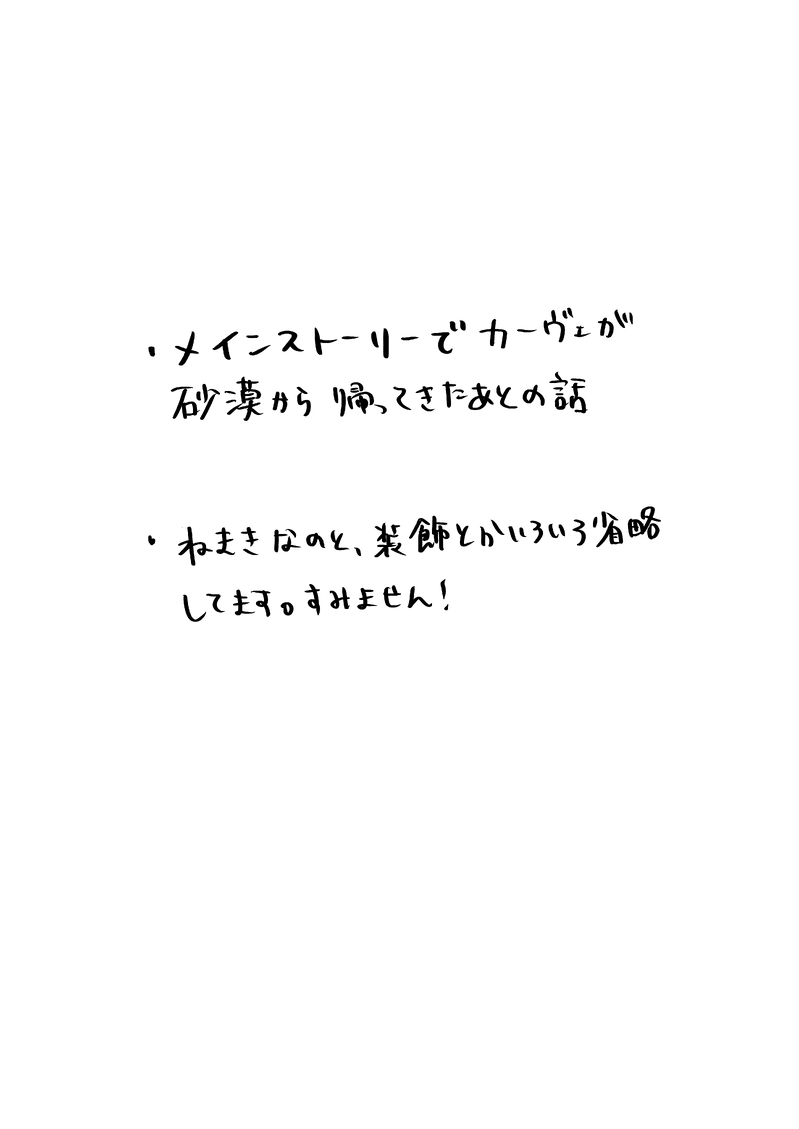 ・メインストーリーでカーヴェが
砂漠から帰ってきたあとの話
・ねまきなのと、装飾とかいろいろ省略
してます。すみません!